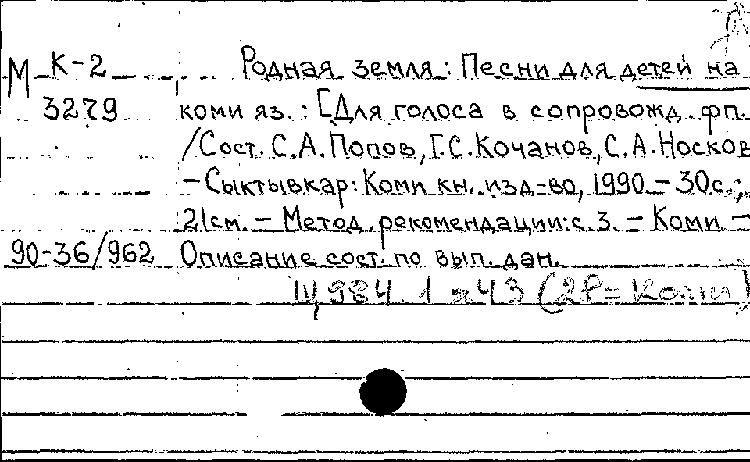 М К-2 Родная земля: Песни для детей на
3279 коми яз.: [Для голоса в сопровожд. фп.
/Сост. С.А.Попов, Г.С.Кочанов, С.А.Носков
– Сыктывкар: Коми кн. изд-во, 1990. – 30с.;
21см. – Метод. рекомендации: с. 3. – Коми. –
90-36/962 Описание сост. по вып. дан.
Щ984.1 я43 (2Р=Коми)